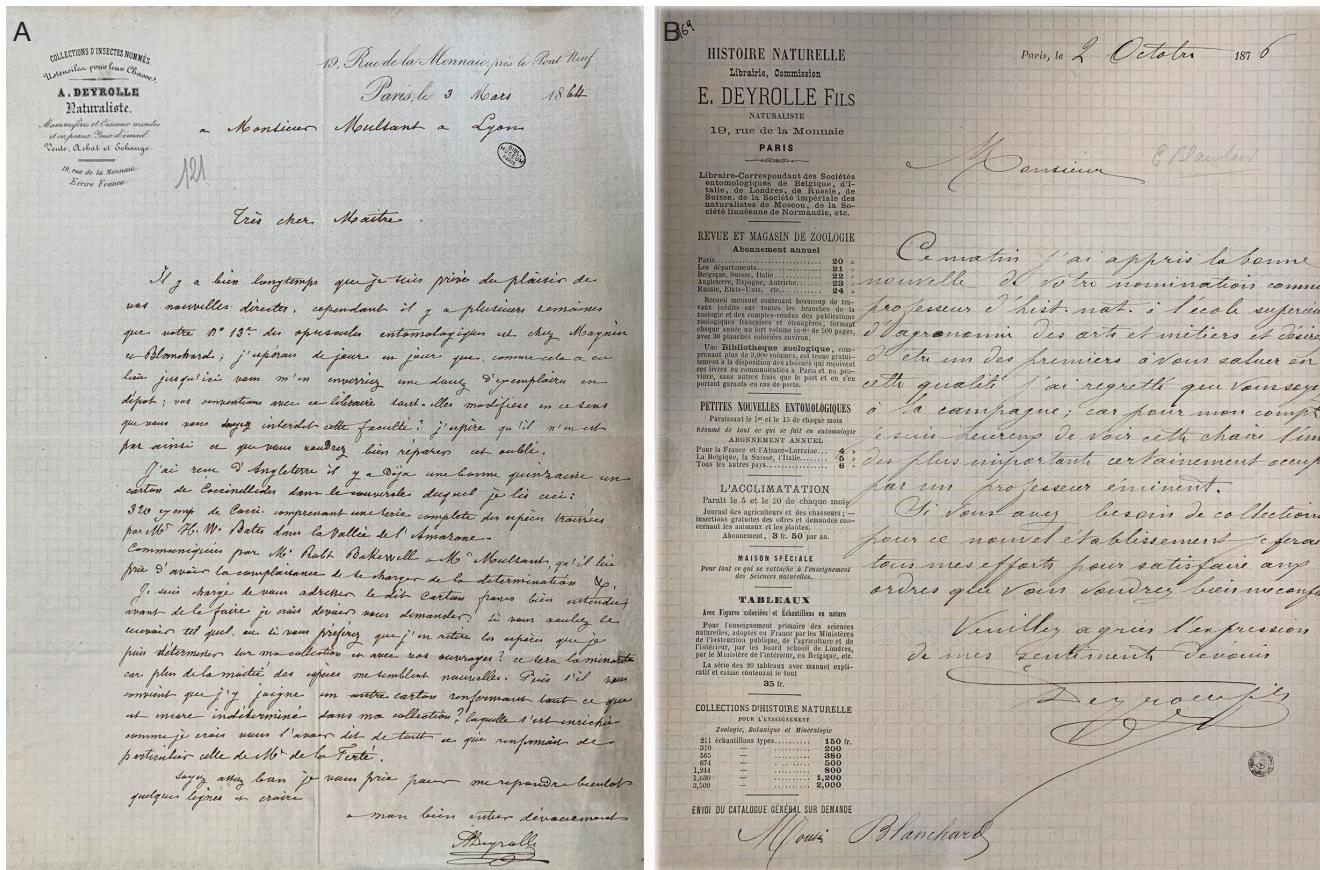 A
COLLECTIONS D'INSECTES NOMMÉS.
Ustensiles pour leur Chasse,
A. DEYROLLE
Naturaliste.
Mammifères et Oiseaux montés
et en peaux. Yeux d'émail
Vente, Achat et Echange.
19, rue de la Monnaie
Ecrire Franco
19, Rue de la Monnaie, près le Pont Neuf
Paris, le 3 Mars 1864
a Monsieur Mulsant a Lyon
BIBL. MUSEUM PARIS
121
Très cher Maitre
Il y a bien longtemps que je suis privé du plaisir de
vos nouvelles directes, cependant il y a plusieurs semaines
que votre nº 13e des opuscules entomologiques est chez Magnin
et Blanchard, j'espérais de jour en jour que, comme cela a eu
lieu jusqu'ici vous m'en enverriez une douze d'exemplaires en
dépot; vos conventions avec ce libraire sont-elles modifiées en ce sens
que vous vous soyez interdit cette faculté? j'espère qu'il n'en est
pas ainsi et que vous voudrez bien réparer cet oublié.
J'ai reçu d'Angleterre il y a déja une bonne quinzaine un
carton de Coccinellides dans le couvercle duquel je lis ceci:
320 exemp de Cocci. comprenant une serie complete des espèces trouvées
par Mr H. W. Bates dans la Vallée de l'Amazone.
Communiquées par Mr Robt Bakewell a Mr Mulsant, qu'il
prie d'avoir la complaisance de se charger de la determination &.
Je suis chargé de vous adresser le dit carton franco bien entendu
avant de le faire je crois devoir vous demander. si vous voulez le
recevoir tel quel, ou si vous préferez que j'en retire les espèces que je
puis déterminer sur ma collection et avec vos ouvrages? ce sera la minorité
car plus de la moitié des espèces me semblent nouvelles. Puis s'il vous
convient que j'y joigne un autre carton renfermant tout ce que
est encore indéterminé dans ma collection? laquelle s'est enrichie
comme je crois vous l'avoir dit de tout ce que renfermait de
particulier celle de Mr de la Ferté.
Soyez assez bon je vous prie pour me repondre bientot
quelques lignes et croire
a mon bien entier dévouement
ADeyrolle
B
169
HISTOIRE NATURELLE
Librairie, Commission
E. DEYROLLE FILS
NATURALISTE
19, rue de la Monnaie
PARIS
Libraire-Correspondant des Sociétés
entomologiques de Belgique, d'I-
talie, de Londres, de Russie, de
Suisse, de la Société impériale des
naturalistes de Moscou, de la So-
ciété linnéenne de Normandie, etc.
REVUE ET MAGASIN DE ZOOLOGIE
Abonnement annuel
Paris.................... 20 »
Les départements......... 21 »
Belgique, Suisse, Italie.... 22 »
Angleterre, Espagne, Autriche... 23 »
Russie, Etats-Unis, etc...... 24 »
Recueil mensuel contenant beaucoup de tra-
vaux inédits sur toutes les branches de la
zoologie et des comptes-rendus des publications
zoologiques françaises et étrangères, formant
chaque année un fort volume in-8º de 500 pages,
avec 30 planches coloriées environ.
Une Bibliothèque zoologique, com-
prenant plus de 3,000 volumes, est tenue gratui-
tement à la disposition des abonnés qui reçoivent
ces livres en communication à Paris et en pro-
vince, sans autres frais que le port et en s'en
portant garants en cas de perte.
PETITES NOUVELLES ENTOMOLOGIQUES
Paraissant le 1er et le 15 de chaque mois
Résumé de tout ce qui se fait en entomologie
ABONNEMENT ANNUEL
Pour la France et l'Alsace-Lorraine... 4 »
La Belgique, la Suisse, l'Italie... 5 »
Tous les autres pays... 6 »
L'ACCLIMATATION
Paraît le 5 et le 20 de chaque mois
Journal des agriculteurs et des chasseurs; —
insertions gratuites des offres et demandes con-
cernant les animaux et les plantes.
Abonnement, 3 fr. 50 par an.
MAISON SPÉCIALE
Pour tout ce qui se rattache à l'enseignement
des Sciences naturelles.
TABLEAUX
Avec Figures coloriées et Échantillons en nature
Pour l'enseignement primaire des sciences
naturelles, adoptés en France par les Ministères
de l'instruction publique, de l'agriculture et de
l'intérieur, par les board schooll de Londres,
par le Ministère de l'intérieur, en Belgique, etc.
La série des 20 tableaux avec manuel expli-
catif et caisse contenant le tout
35 fr.
COLLECTIONS D'HISTOIRE NATURELLE
POUR L'ENSEIGNEMENT
Zoologie, Botanique et Minéralogie
211 échantillons types......... 150 fr.
310 — ......... 200
565 — ......... 380
674 — ......... 500
1,244 — ......... 800
1,630 — ......... 1,200
3,500 — ......... 2,000
ENVOI DU CATALOGUE GÉNÉRAL SUR DEMANDE
Paris, le 2 Octobre 1876
E Blanchard
Monsieur
Ce matin j'ai appris la bonne
nouvelle de votre nomination comme
professeur d'hist. nat. à l'école supérieu
d'agronomie des arts et métiers et désire
d'être un des premiers à vous saluer en
cette qualité j'ai regretté que vous soye
à la campagne; car pour mon compte
je suis heureux de voir cette chaire l'une
des plus importante certainement occup
par un professeur éminent.
Si vous avez besoin de collection
pour ce nouvel établissement je ferai
tous mes efforts pour satisfaire aux
ordres que vous voudrez bien me confi
Veuillez agréer l'expression
de mes sentiments dévoués
Deyrolle fils
Blanchard